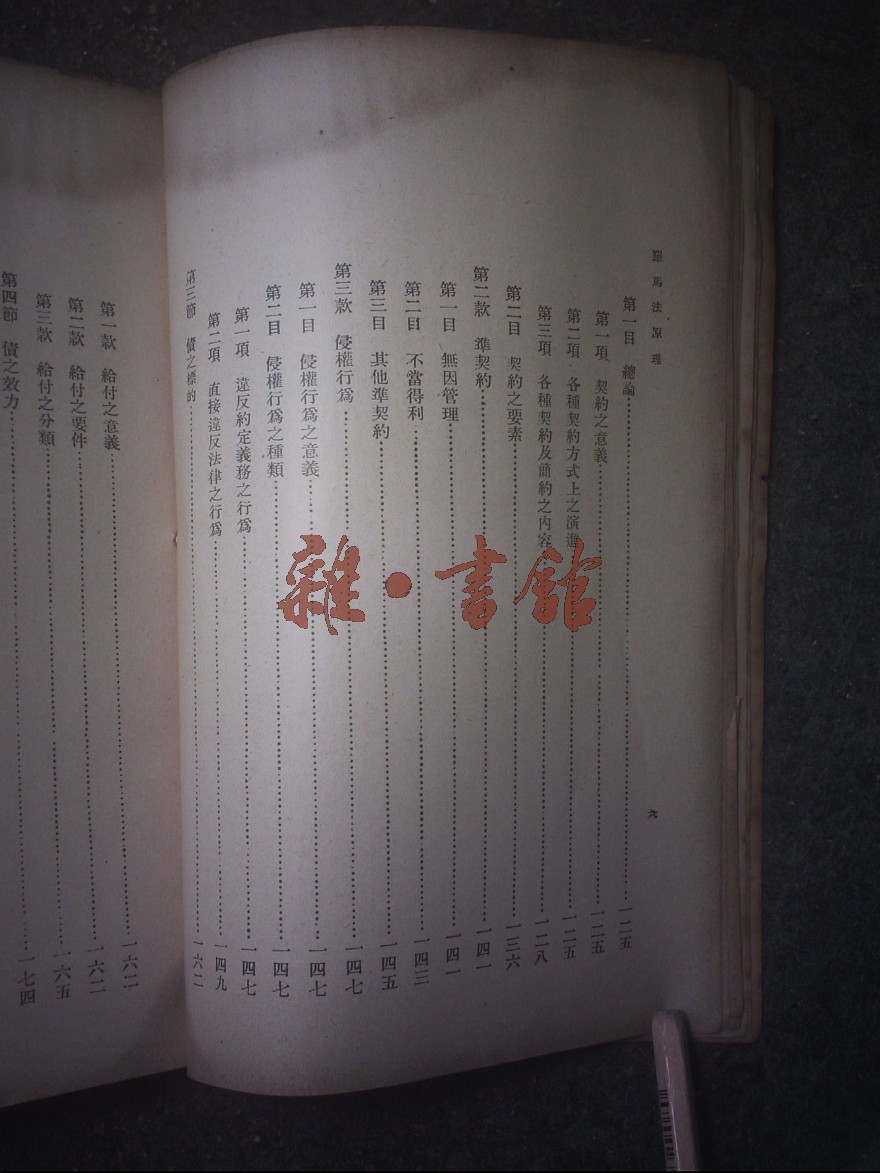 羅馬法原理
六
第一目 總論……一二五
第一項 契約之意義……一二五
第二項 各種契約方式上之演進……一二五
第三項 各種契約及簡約之內容……一二八
第二目 契約之要素……一三六
第二款 準契約……一四一
第一目 無因管理……一四一
第二目 不當得利……一四三
第三目 其他準契約……一四五
第三款 侵權行爲……一四七
第一目 侵權行爲之意義……一四七
第二目 侵權行爲之種類……一四七
第一項 違反約定義務之行爲……一四七
第二項 直接違反法律之行爲……一四九
第三節 債之標的……一六二
第一款 給付之意義……一六二
第二款 給付之要件……一六二
第三款 給付之分類……一六五
第四節 債之效力……一七四
雜·書館